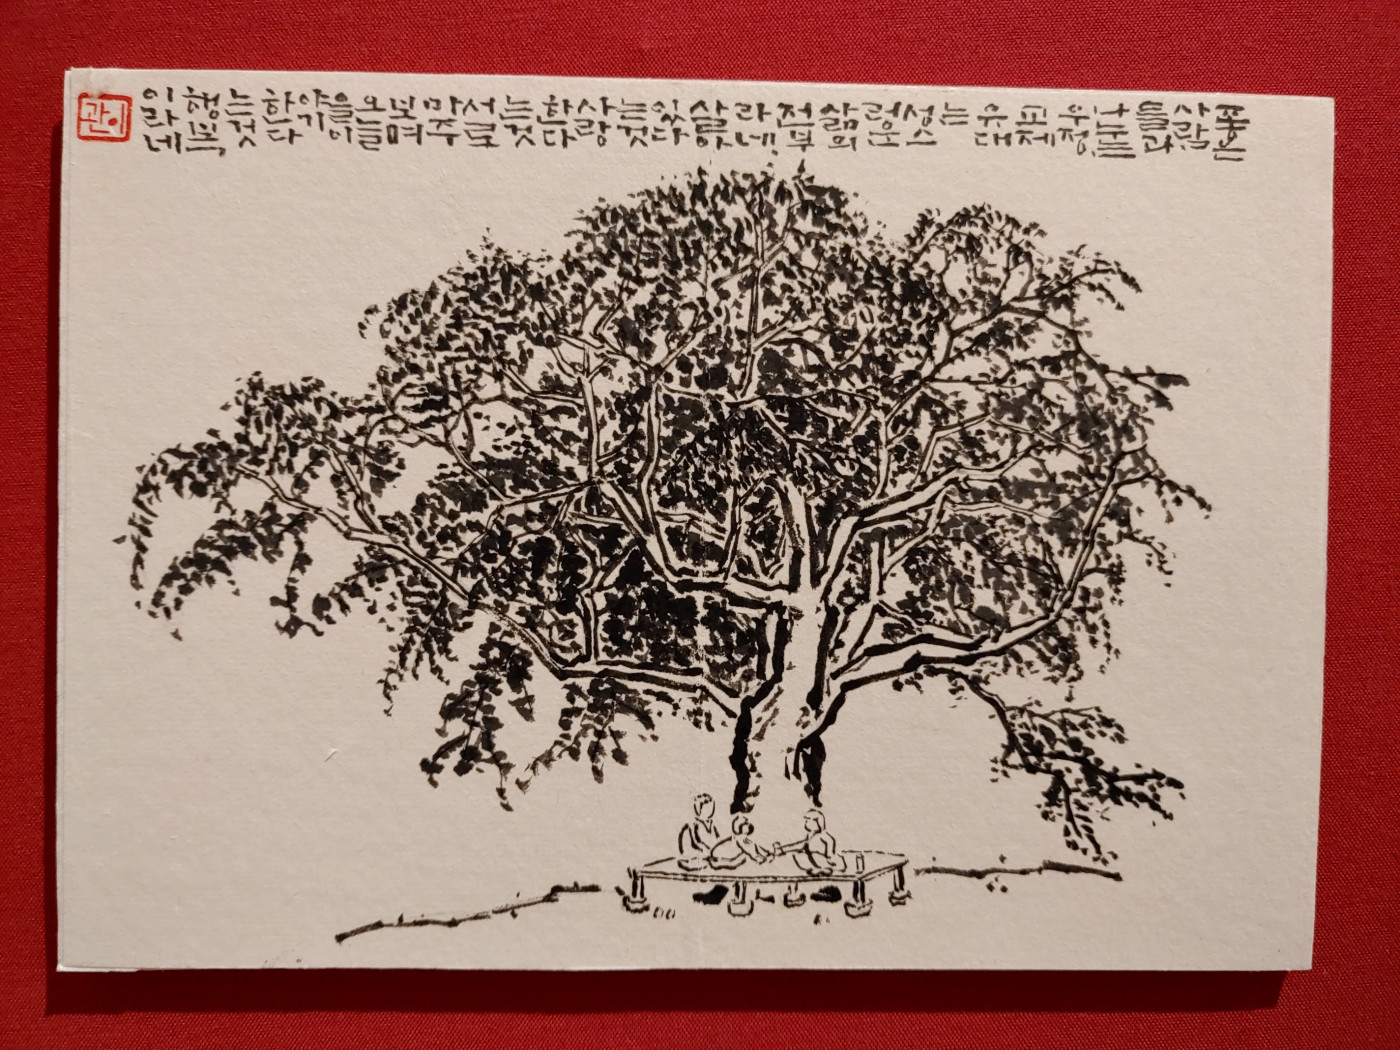 좋은
사람
들과
나누는
우정,
교제
유대
는
성스
러운
삶의
전부
라네.
살아
있다
는것
사랑
한다
는것
서로
마주
보며
오늘
을이
야기
한다
는것
행복,
이라네
이관